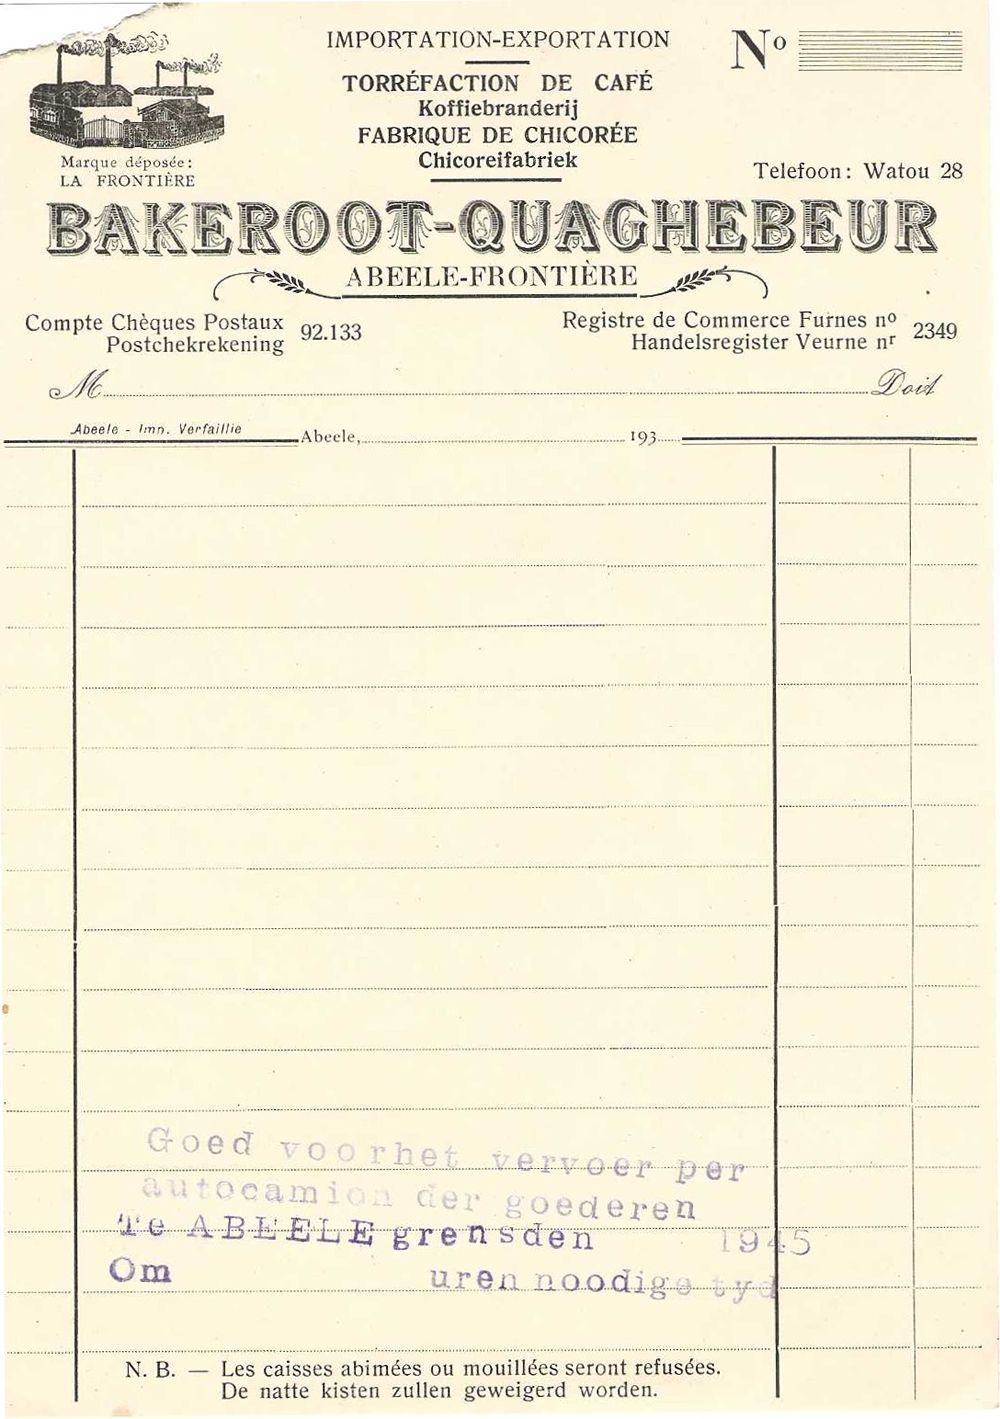 IMPORTATION-EXPORTATION
Nº
TORRÉFACTION DE CAFÉ
Koffiebranderij
FABRIQUE DE CHICORÉE
Chicoreifabriek
Marque déposée:
LA FRONTIÈRE
Telefoon: Watou 28
BAKEROOT-QUAGHEBEUR
ABEELE-FRONTIÈRE
Compte Chèques Postaux
Postchekrekening
92.133
Registre de Commerce Furnes nº
Handelsregister Veurne nr
2349
M Doit
Abeele - Imp. Verfaillie
Abeele, 193
Goed voorhet vervoer per
autocamion der goederen
Te ABEELE grensden 1945
Om uren noodige tyd
N. B. — Les caisses abimées ou mouillées seront refusées.
De natte kisten zullen geweigerd worden.